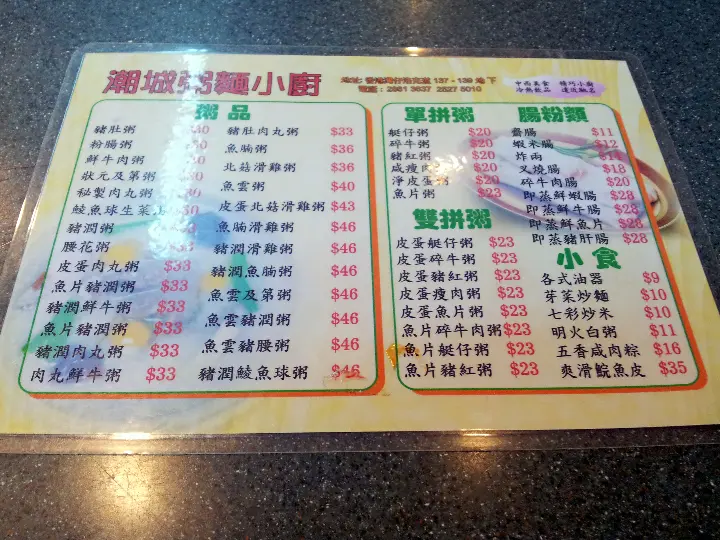 潮城粥麵小廚
137 - 139 地下
2861 3637 2527 5010
中西美食 精巧小廚
冷熱飲品 遠近馳名
粥品
豬肚粥
粉腸粥
鮮牛肉粥
狀元及第粥
秘製肉丸粥
鯪魚球生菜
豬潤粥
腰花粥 $33
皮蛋肉丸粥 $33
魚片豬潤粥 $33
豬潤鮮牛粥 $33
魚片豬潤粥 $33
豬潤肉丸粥 $33
肉丸鮮牛粥 $33
豬肚肉丸粥 $33
魚腩粥 $36
北菇滑雞粥 $36
魚雲粥 $40
皮蛋北菇滑雞粥 $43
魚腩滑雞粥 $46
豬潤滑雞粥 $46
豬潤魚腩粥 $46
魚雲及第粥 $46
魚雲豬潤粥 $46
魚雲豬腰粥 $46
豬潤鯪魚球粥 $46
單拼粥
艇仔粥 $20
碎牛粥 $20
豬紅粥 $20
咸瘦肉 $20
淨皮蛋粥 $20
魚片粥 $23
雙拼粥
皮蛋艇仔粥 $23
皮蛋碎牛粥 $23
皮蛋豬紅粥 $23
皮蛋瘦肉粥 $23
皮蛋魚片粥 $23
魚片碎牛肉粥 $23
魚片艇仔粥 $23
魚片豬紅粥 $23
腸粉類
齋腸 $11
蝦米腸 $12
炸兩 $14
叉燒腸 $18
碎牛肉腸 $20
即蒸鮮蝦腸 $28
即蒸鮮牛腸 $28
即蒸鮮魚片 $28
即蒸豬肝腸 $28
小食
各式油器 $9
芽菜炒麵 $10
七彩炒米 $10
明火白粥 $11
五香咸肉粽 $16
爽滑鯇魚皮 $35